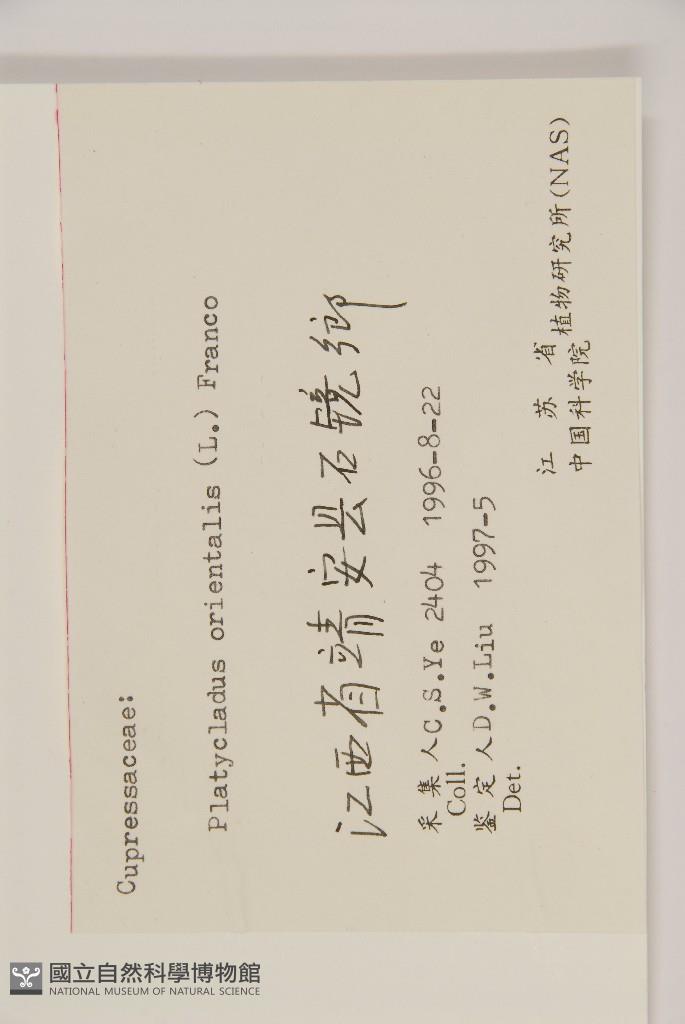 Cupressaceae:
Platycladus orientalis (L.) Franco
江西省靖安县石镜鄉
采集人 C.S.Ye 2404 1996-8-22
Coll.
鉴定人 D.W.Liu 1997-5
Det.
江苏省
中国科学院
植物研究所(NAS)
國立自然科學博物館
NATIONAL MUSEUM OF NATURAL SCIENCE